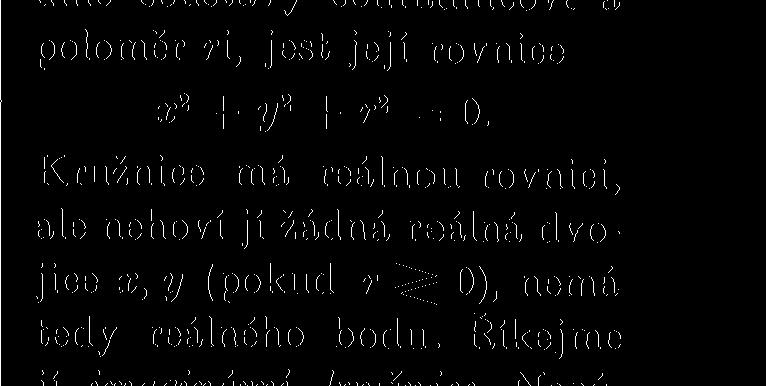 poloměr ri, jest její rovnice
x² + y² + r² = 0.
Kružnice má reálnou rovnici,
ale nehoví jí žádná reálná dvo-
jice x, y (pokud r ≷ 0), nemá
tedy reálného bodu. Říkejme